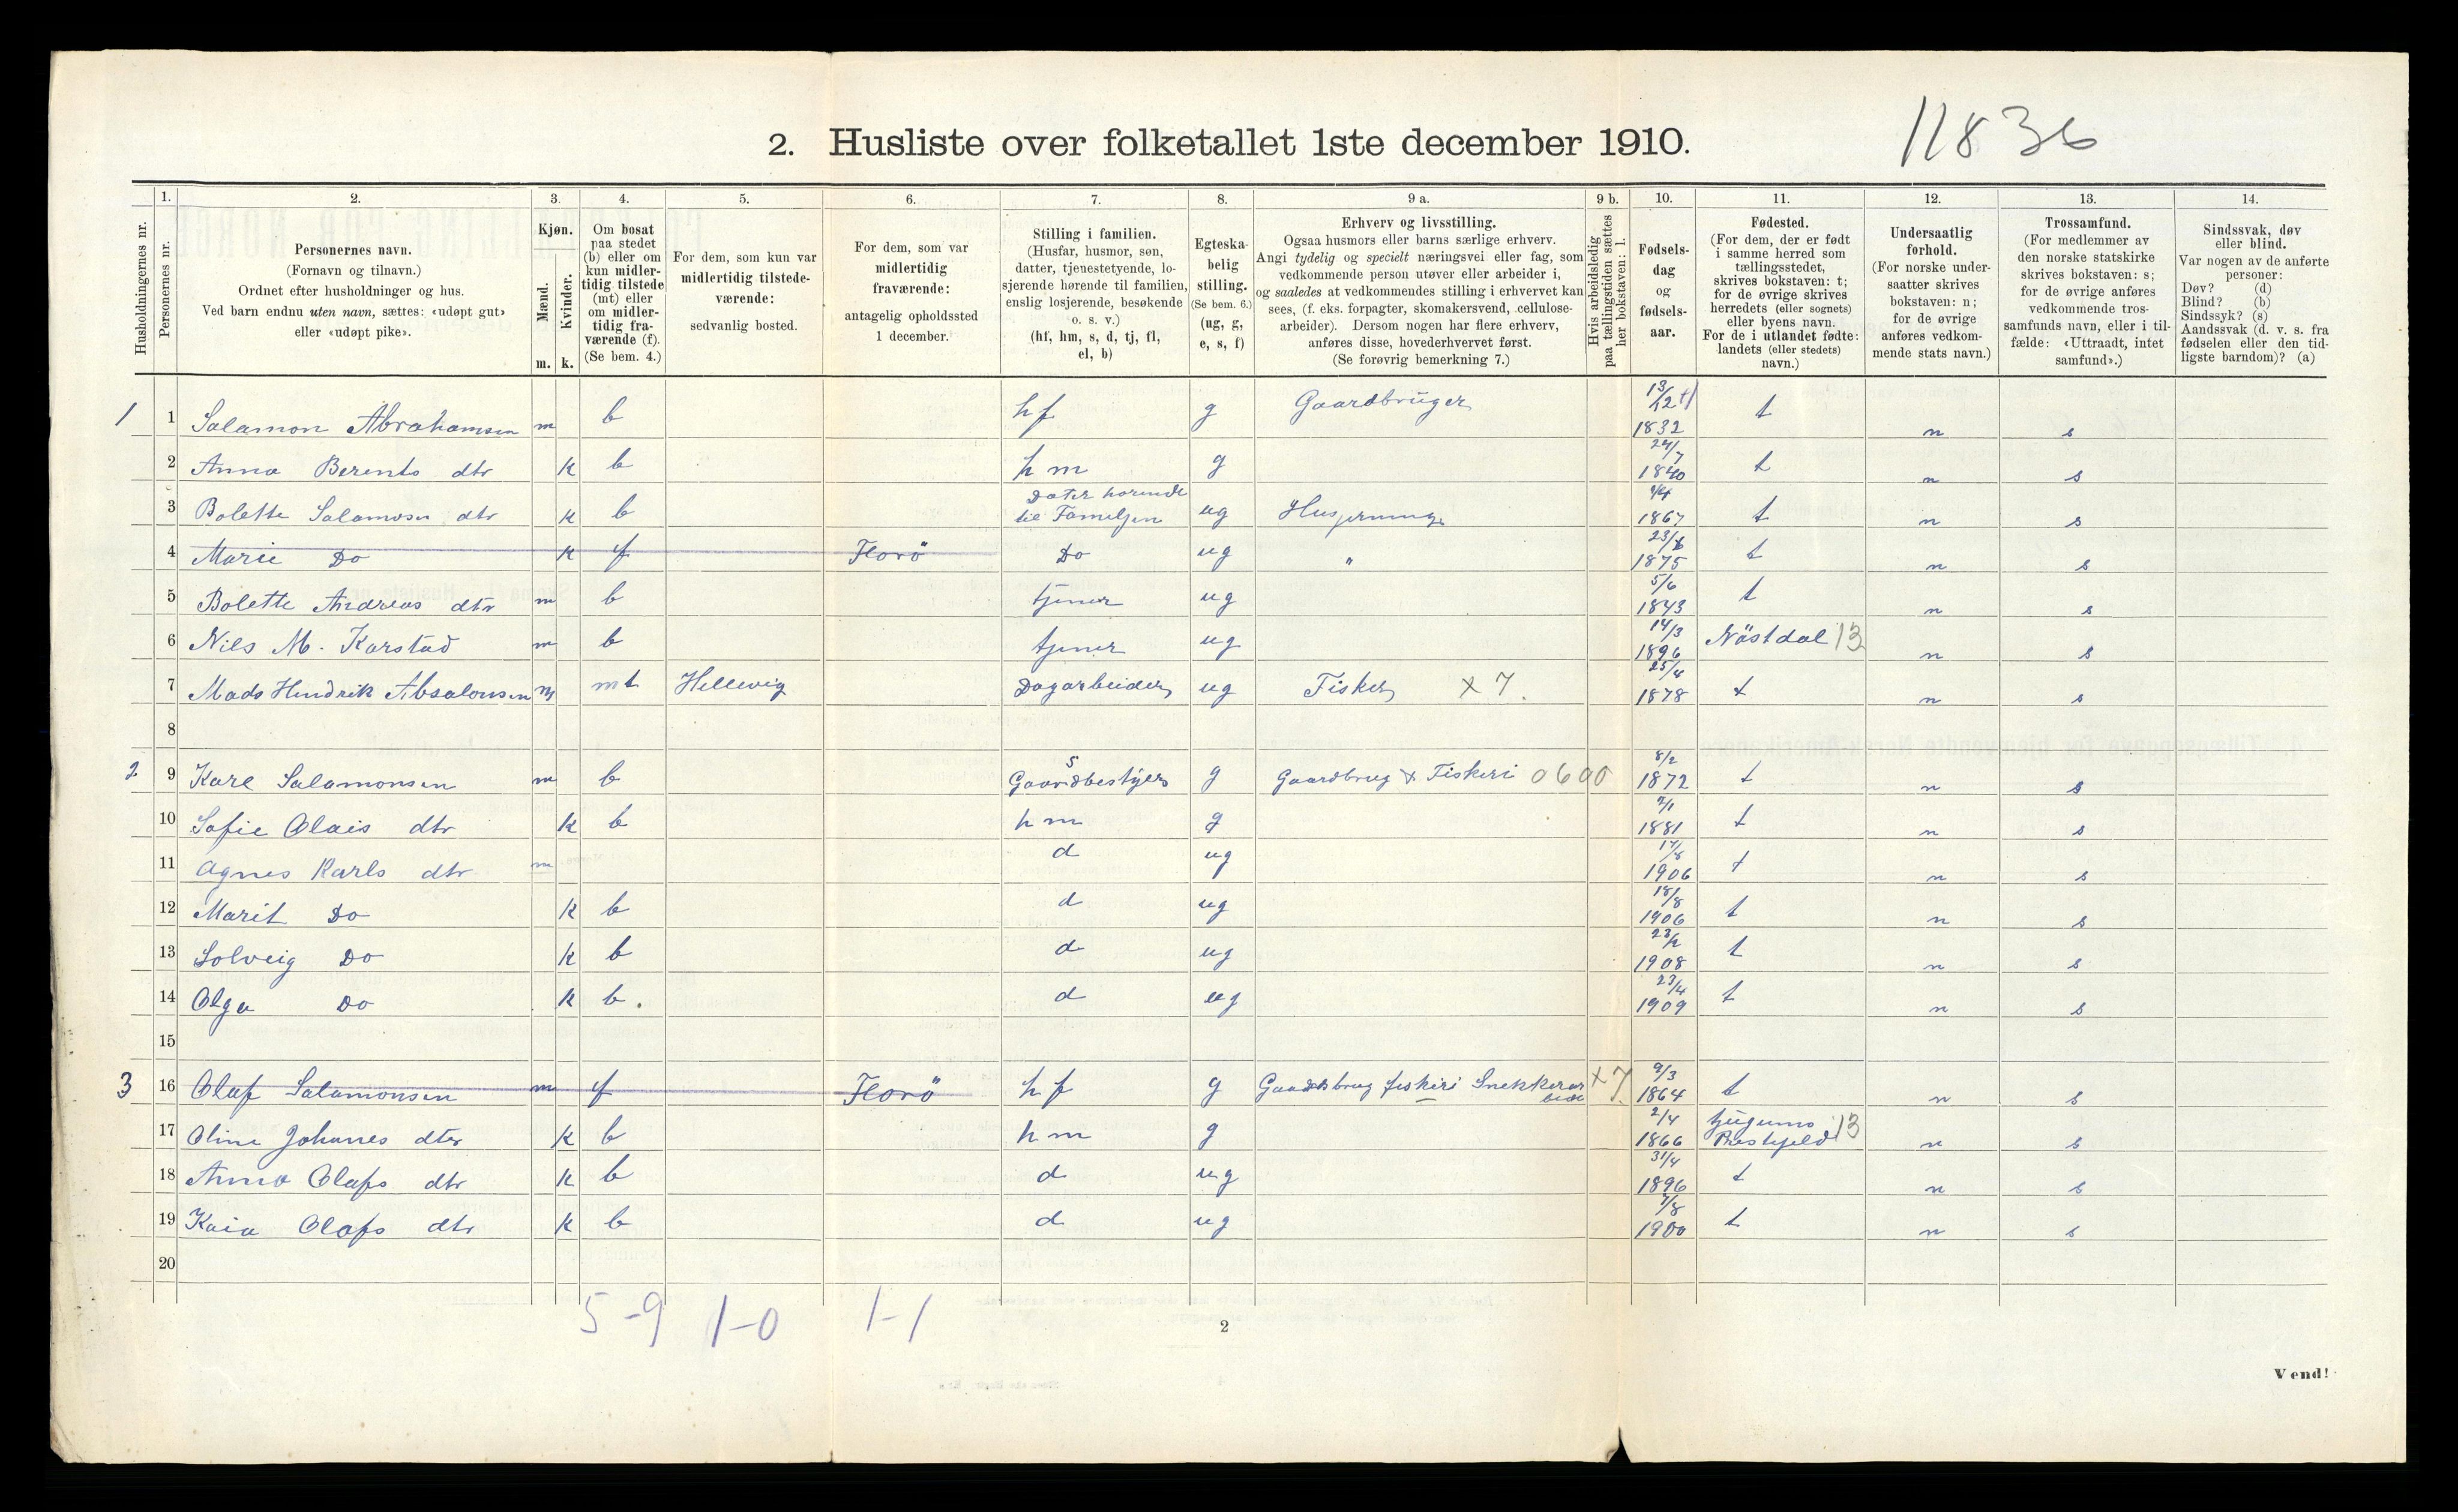 2. Husliste over folketallet 1ste december 1910.
11836
1. 2. 3. 4. 5. 6. 7. 8. 9 a. 9 b. 10. 11. 12. 13. 14.
Husholdningernes nr.
Personernes nr.
Personernes navn.
(Fornavn og tilnavn.)
Ordnet efter husholdninger og hus.
Ved barn endnu uten navn, sættes: «udøpt gut»
eller «udøpt pike».
Kjøn.
Mænd.
Kvinder.
m. k.
Om bosat
paa stedet
(b) eller om
kun midler-
tidig tilstede
(mt) eller
om midler-
tidig fra-
værende (f).
(Se bem. 4.)
For dem, som kun var
midlertidig tilstede-
værende:
sedvanlig bosted.
For dem, som var
midlertidig
fraværende:
antagelig opholdssted
1 december.
Stilling i familien.
(Husfar, husmor, søn,
datter, tjenestetyende, lo-
sjerende hørende til familien,
enslig losjerende, besøkende
o. s. v.)
(hf, hm, s, d, tj, fl,
el, b)
Egteska-
belig
stilling.
(Se bem. 6.)
(ug, g,
e, s, f)
Erhverv og livsstilling.
Ogsaa husmors eller barns særlige erhverv.
Angi tydelig og specielt næringsvei eller fag, som
vedkommende person utøver eller arbeider i,
og saaledes at vedkommendes stilling i erhvervet kan
sees, (f. eks. forpagter, skomakersvend, cellulose-
arbeider). Dersom nogen har flere erhverv,
anføres disse, hovederhvervet først.
(Se forøvrig bemerkning 7.)
Hvis arbeidsledig
paa tællingstiden sættes
her bokstaven: l.
Fødsels-
dag
og
fødsels-
aar.
Fødested.
(For dem, der er født
i samme herred som
tællingsstedet,
skrives bokstaven: t;
for de øvrige skrives
herredets (eller sognets)
eller byens navn.
For de i utlandet fødte:
landets (eller stedets)
navn.)
Undersaatlig
forhold.
(For norske under-
saatter skrives
bokstaven: n;
for de øvrige
anføres vedkom-
mende stats navn.)
Trossamfund.
(For medlemmer av
den norske statskirke
skrives bokstaven: s;
for de øvrige anføres
vedkommende tros-
samfunds navn, eller i til-
fælde: «Uttraadt, intet
samfund».)
Sindssvak, døv
eller blind.
Var nogen av de anførte
personer:
Døv? (d)
Blind? (b)
Sindssyk? (s)
Aandssvak (d. v. s. fra
fødselen eller den tid-
ligste barndom)? (a)
1 1 Salamon Abrahamsen m b hf g Gaardbruger 13/12 1832 t n s
2 Anna Berents dtr k b hm g 24/7 1840 t n s
3 Bolette Salamosn dtr k b Dater hørende til Familjen ug Husgerning 1867 t n s
4 Marie Do k f Florö Do ug " 23/6 1875 t n s
5 Bolette Andreas dtr m b tjener ug 5/6 1843 t n s
6 Nils M. Karstad m b tjener ug 14/3 1896 Nöstdal 13 n s
7 Mads Hendrik Absalonsen m mt Hellevig Dagarbeider ug Fisker x 7. 25/4 1878 t n s
8
2 9 Karl Salamonsen m b s Gaardbestyer g Gaardbrug & Fiskeri 0600 8/2 1872 t n s
10 Sofie Olais dtr k b hm g 7/1 1881 t n s
11 Agnes Karls dtr m d ug 17/8 1906 t n s
12 Marit Do k b d ug 18/8 1906 t n s
13 Solveig Do k b d ug 23/2 1908 t n s
14 Olga Do k b. d ug 23/4 1909 t n s
15
3 16 Olaf Salamonsen m f Florö hf g Gaardsbrug fiskeri x 7. 9/3 1864 t n s
17 Oline Johanes dter k b hm g 2/4 1866 13 n s
18 Anna Olafs dtr k b d ug 31/4 1896 t n s
19 Kaia Olafs dtr k b d ug 7/8 1900 t n s
20
5-9 1-0 1-1
2
Vend!